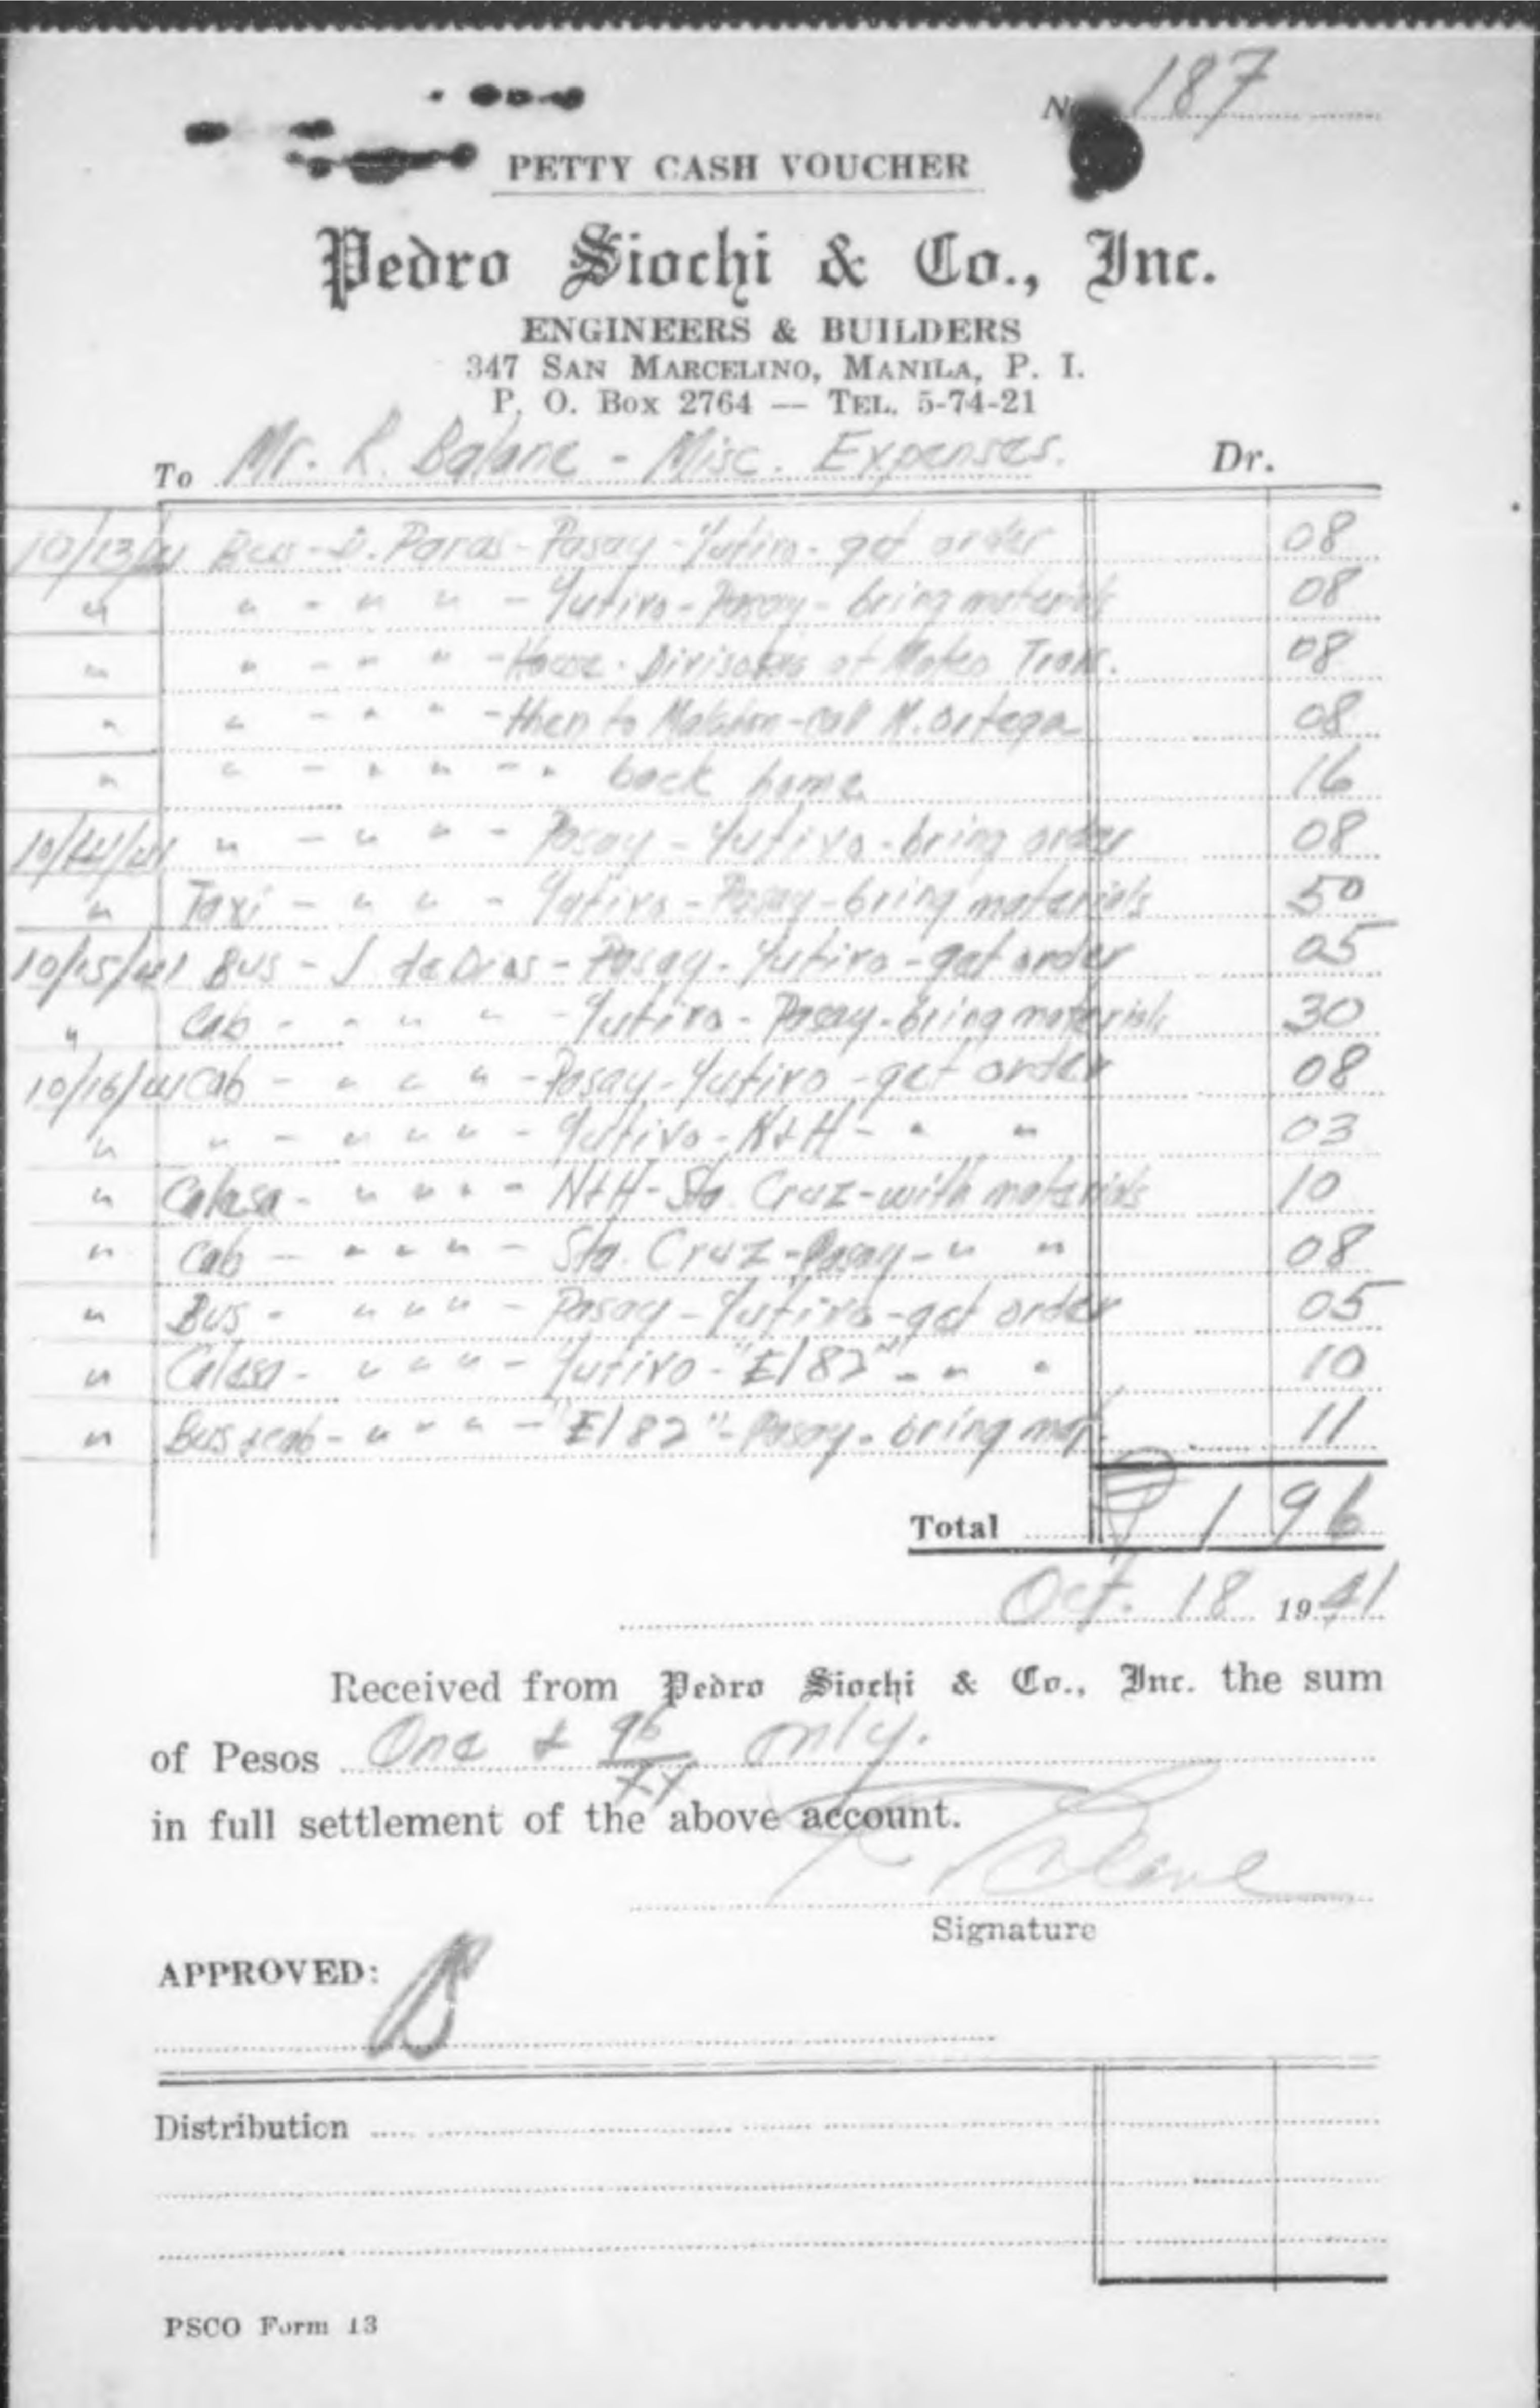 No. 187
PETTY CASH VOUCHER
Pedro Siochi & Co., Inc.
ENGINEERS & BUILDERS
347 SAN MARCELINO, MANILA, P. I.
P. O. Box 2764 — TEL. 5-74-21
To Mr. R. Balane - Misc. Expenses. Dr.
10/13/41 Bus - D. Paras - Pasay - Yutivo - get order 08
" " - " " - Yutivo - Pasay - bring materials 08
" " - " " - House - Divisoria at Mateo Trans. 08
" " - " " - then to Malabon - call M. Ortega 08
" " - " " - " back home 16
10/14/41 " - " " - Pasay - Yutivo - bring order 08
" Taxi - " " - Yutivo - Pasay - bring materials 50
10/15/41 Bus - J de Dios - Pasay - Yutivo - get order 05
" Cab - " " " - Yutivo - Pasay - bring materials 30
10/16/41 Cab - " " " - Pasay - Yutivo - get order 08
" " - " " " - Yutivo - N&H - " " 03
" Calesa - " " " - N&H - Sta. Cruz - with materials 10
" Cab - " " " - Sta. Cruz - Pasay - " " 08
" Bus - " " " - Pasay - Yutivo - get order 05
" Calesa - " " " - Yutivo - "E/82" - " " 10
" Bus & cab - " " " - "E/82" - Pasay - bring mat. 11
Total ₱ 1 96
Oct. 18 1941
Received from Pedro Siochi & Co., Inc. the sum
of Pesos One & 96/xx only.
in full settlement of the above account.
R Balane
Signature
APPROVED:
Distribution
PSCO Form 13